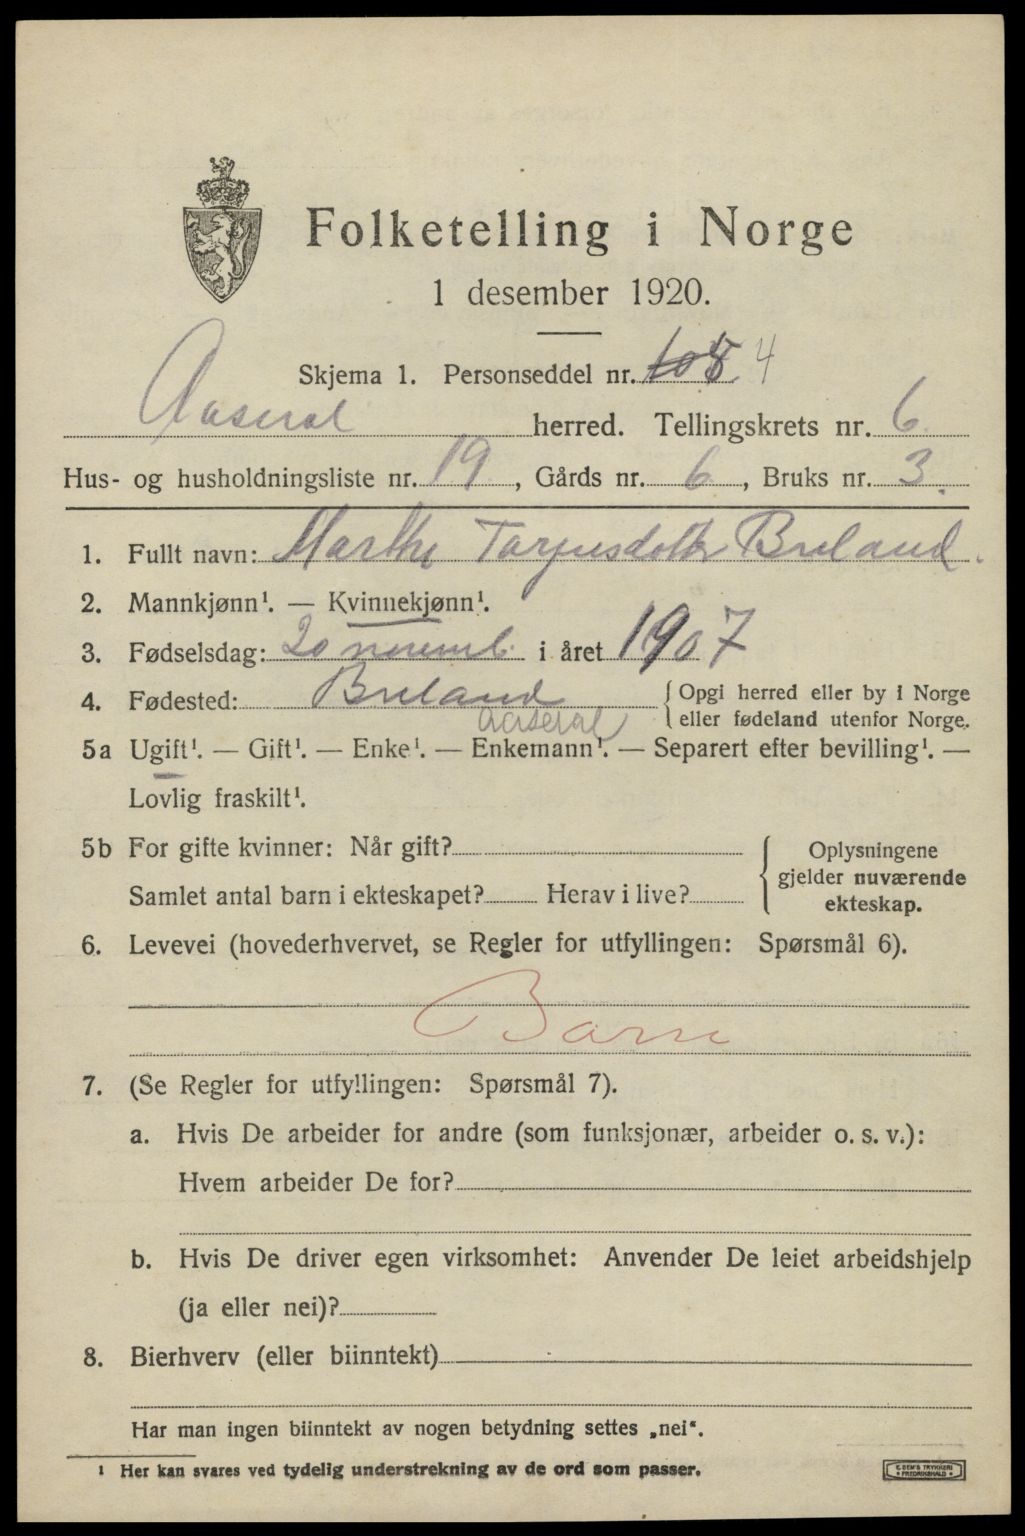 Folketelling i Norge
1 desember 1920.
Skjema 1. Personseddel nr. 4
Aaseral herred. Tellingskrets nr. 6
Hus- og husholdningsliste nr. 19, Gårds nr. 6, Bruks nr. 3.
1. Fullt navn: Marthe Torjusdotter Breland.
2. Mannkjønn¹. — Kvinnekjønn¹.
3. Fødselsdag: 20 novemb. i året 1907
4. Fødested: Breland { Opgi herred eller by i Norge
Aaseral eller fødeland utenfor Norge.
5a Ugift¹. — Gift¹. — Enke¹. — Enkemann¹. — Separert efter bevilling¹. —
Lovlig fraskilt¹.
5b For gifte kvinner: Når gift? { Oplysningene
gjelder nuværende
Samlet antal barn i ekteskapet? Herav i live? ekteskap.
6. Levevei (hovederhvervet, se Regler for utfyllingen: Spørsmål 6).
Barn
7. (Se Regler for utfyllingen: Spørsmål 7).
a. Hvis De arbeider for andre (som funksjonær, arbeider o. s. v.):
Hvem arbeider De for?
b. Hvis De driver egen virksomhet: Anvender De leiet arbeidshjelp
(ja eller nei)?
8. Bierhverv (eller biinntekt)
Har man ingen biinntekt av nogen betydning settes „nei“.
¹ Her kan svares ved tydelig understrekning av de ord som passer.
E SEM'S TRYKKERI
FREDRIKSHALD